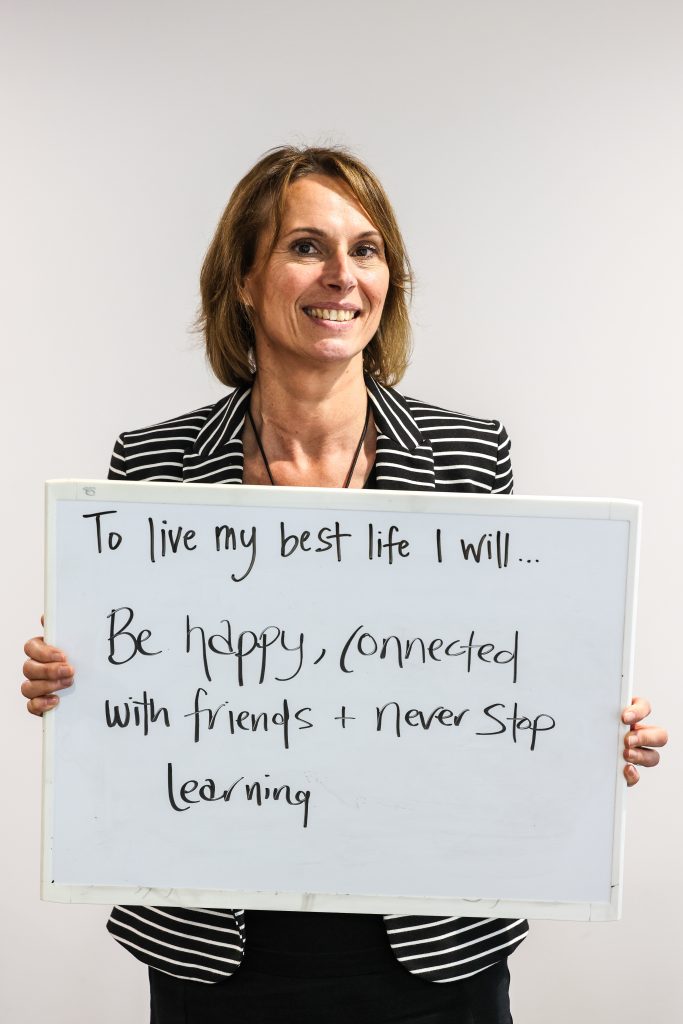 To live my best life I will...
Be happy, connected
with friends + never stop
learning